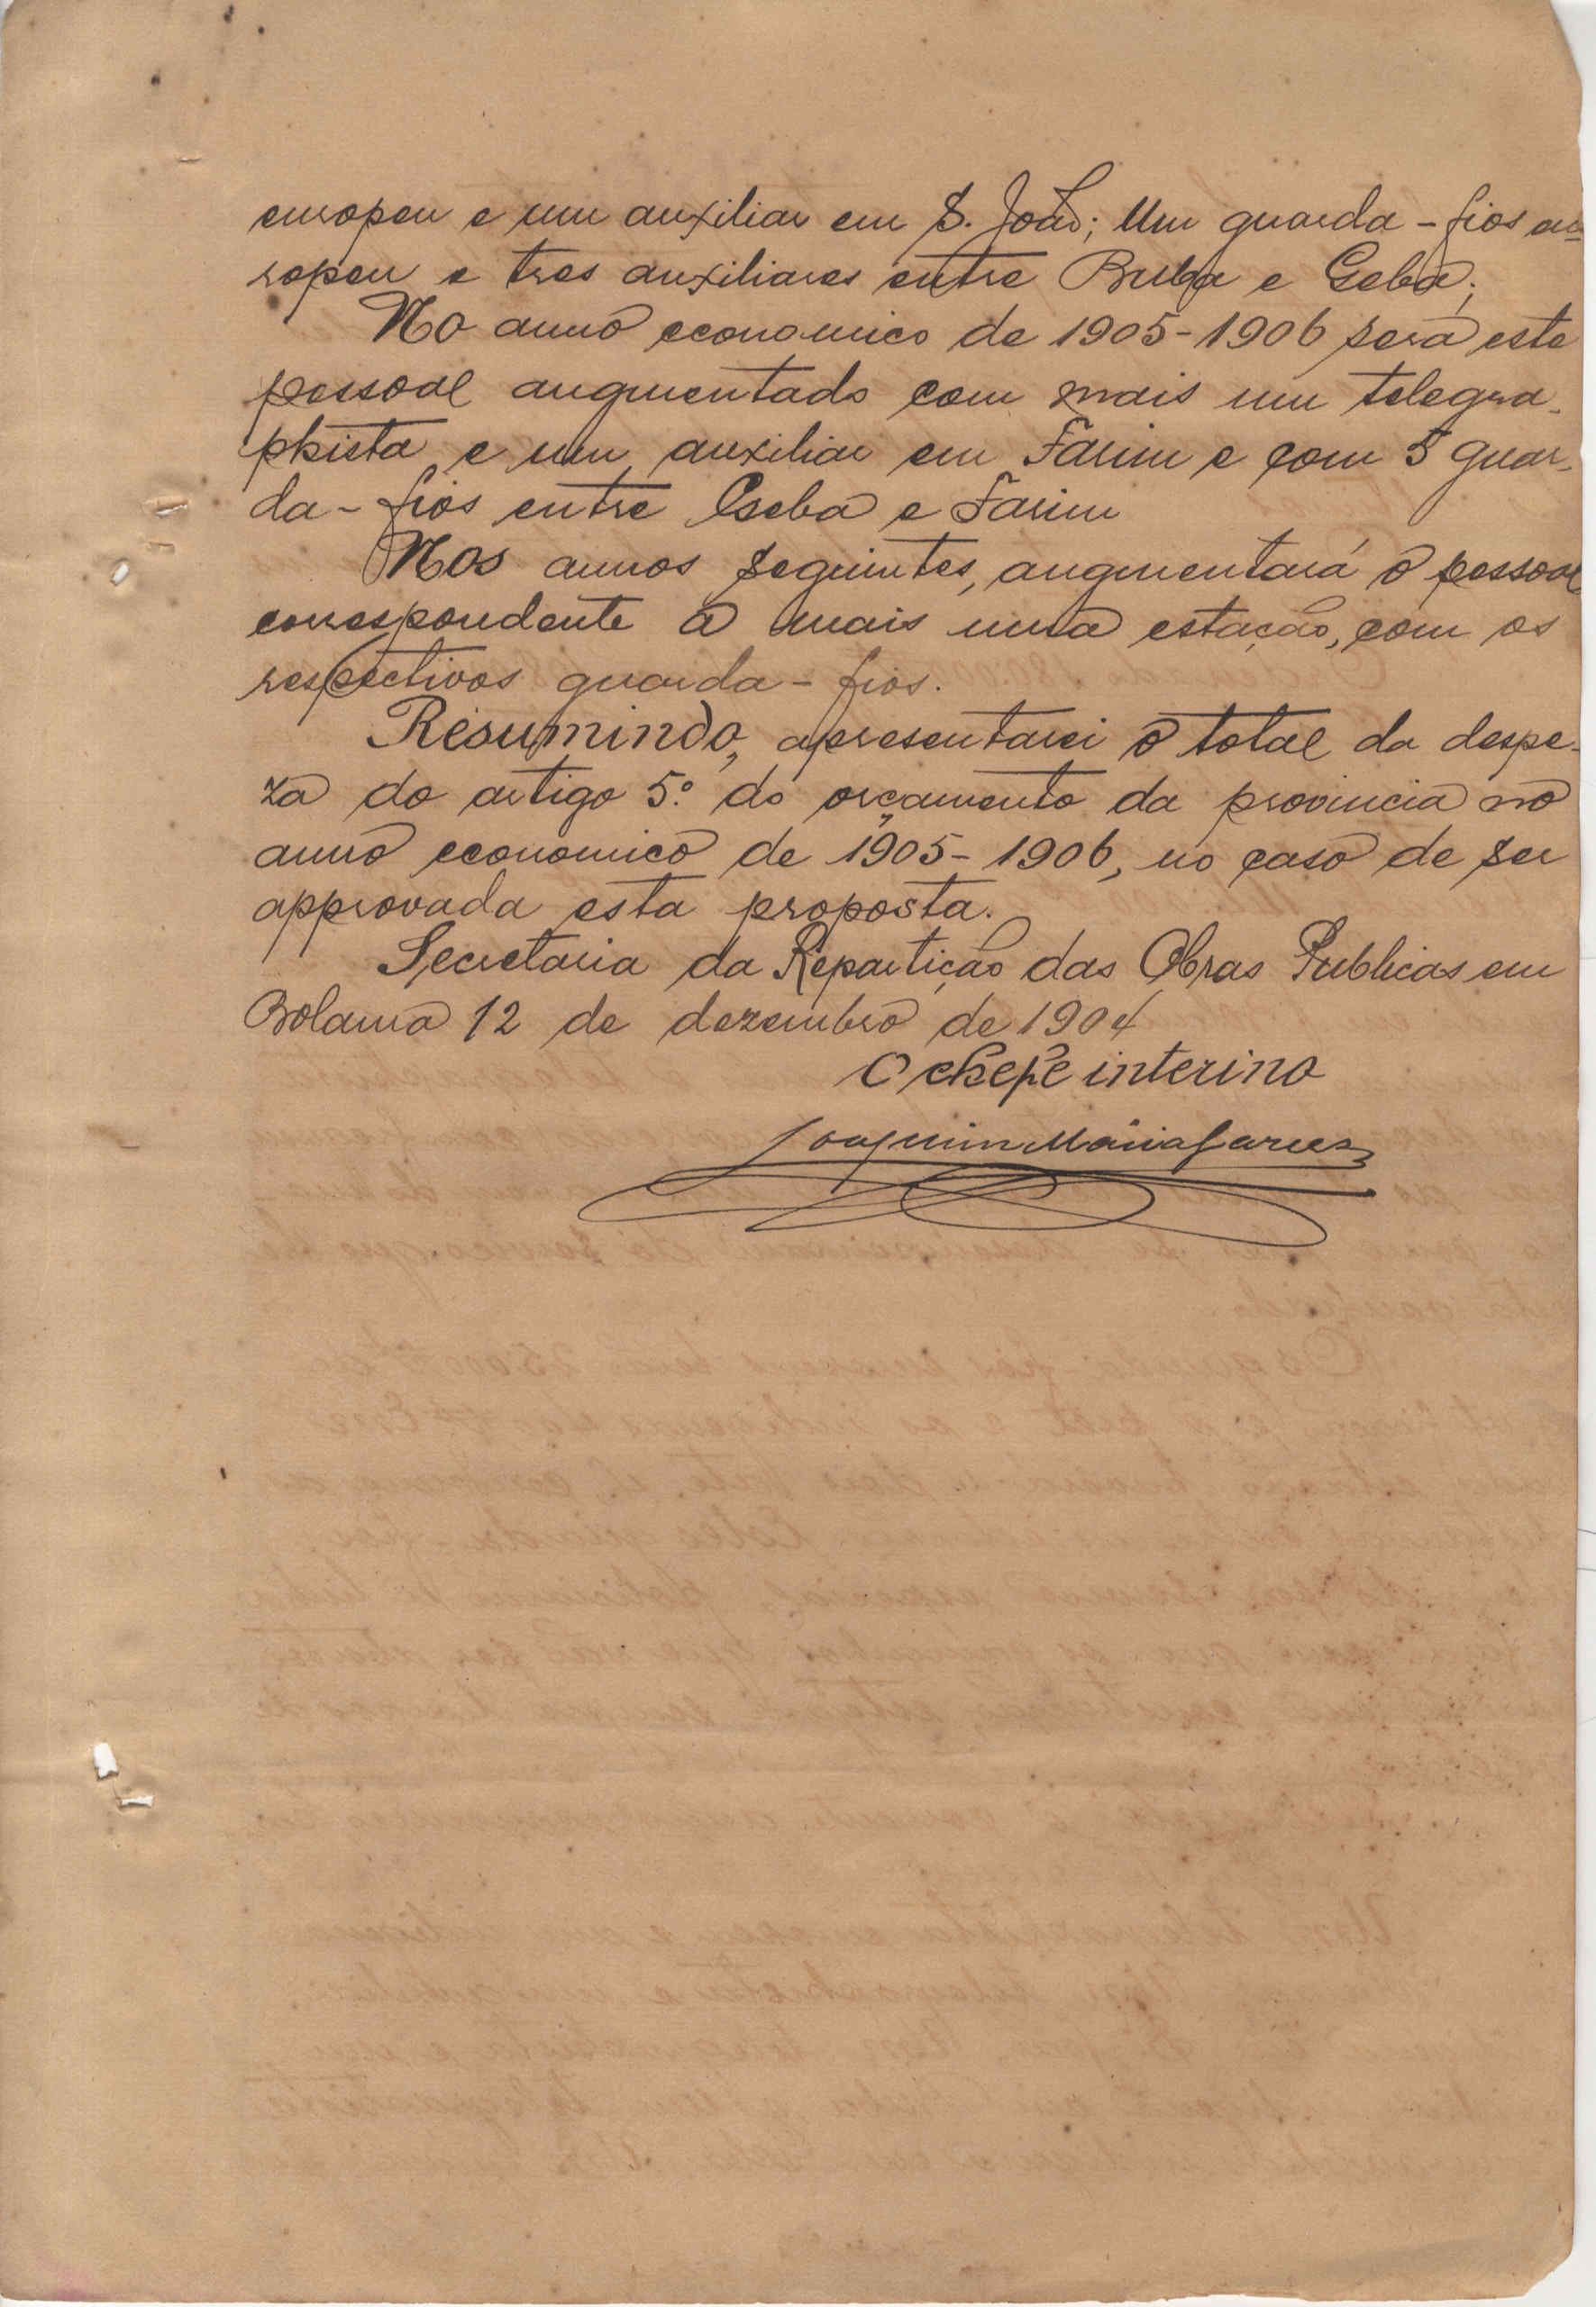 europeu e um auxiliar em S. João; Um guarda-fios eu=
ropeu e tres auxiliares entre Buba e Geba;
No anno economico de 1905-1906 será este
pessoal augmentado com mais um telegra-
phista e um auxiliar em Farim e com 5 guar-
da-fios entre Geba e Farim
Nos annos seguintes, augmentará o pessoal
correspondente a mais uma estação, com os
respectivos guarda-fios.
Resumindo, apresentarei o total da despe-
za do artigo 5.º do orçamento da provincia no
anno economico de 1905-1906, no caso de ser
approvada esta proposta.
Secretaria da Repartição das Obras Publicas em
Bolama 12 de dezembro de 1904
O chefe interino
Joaquim Maria Garcez